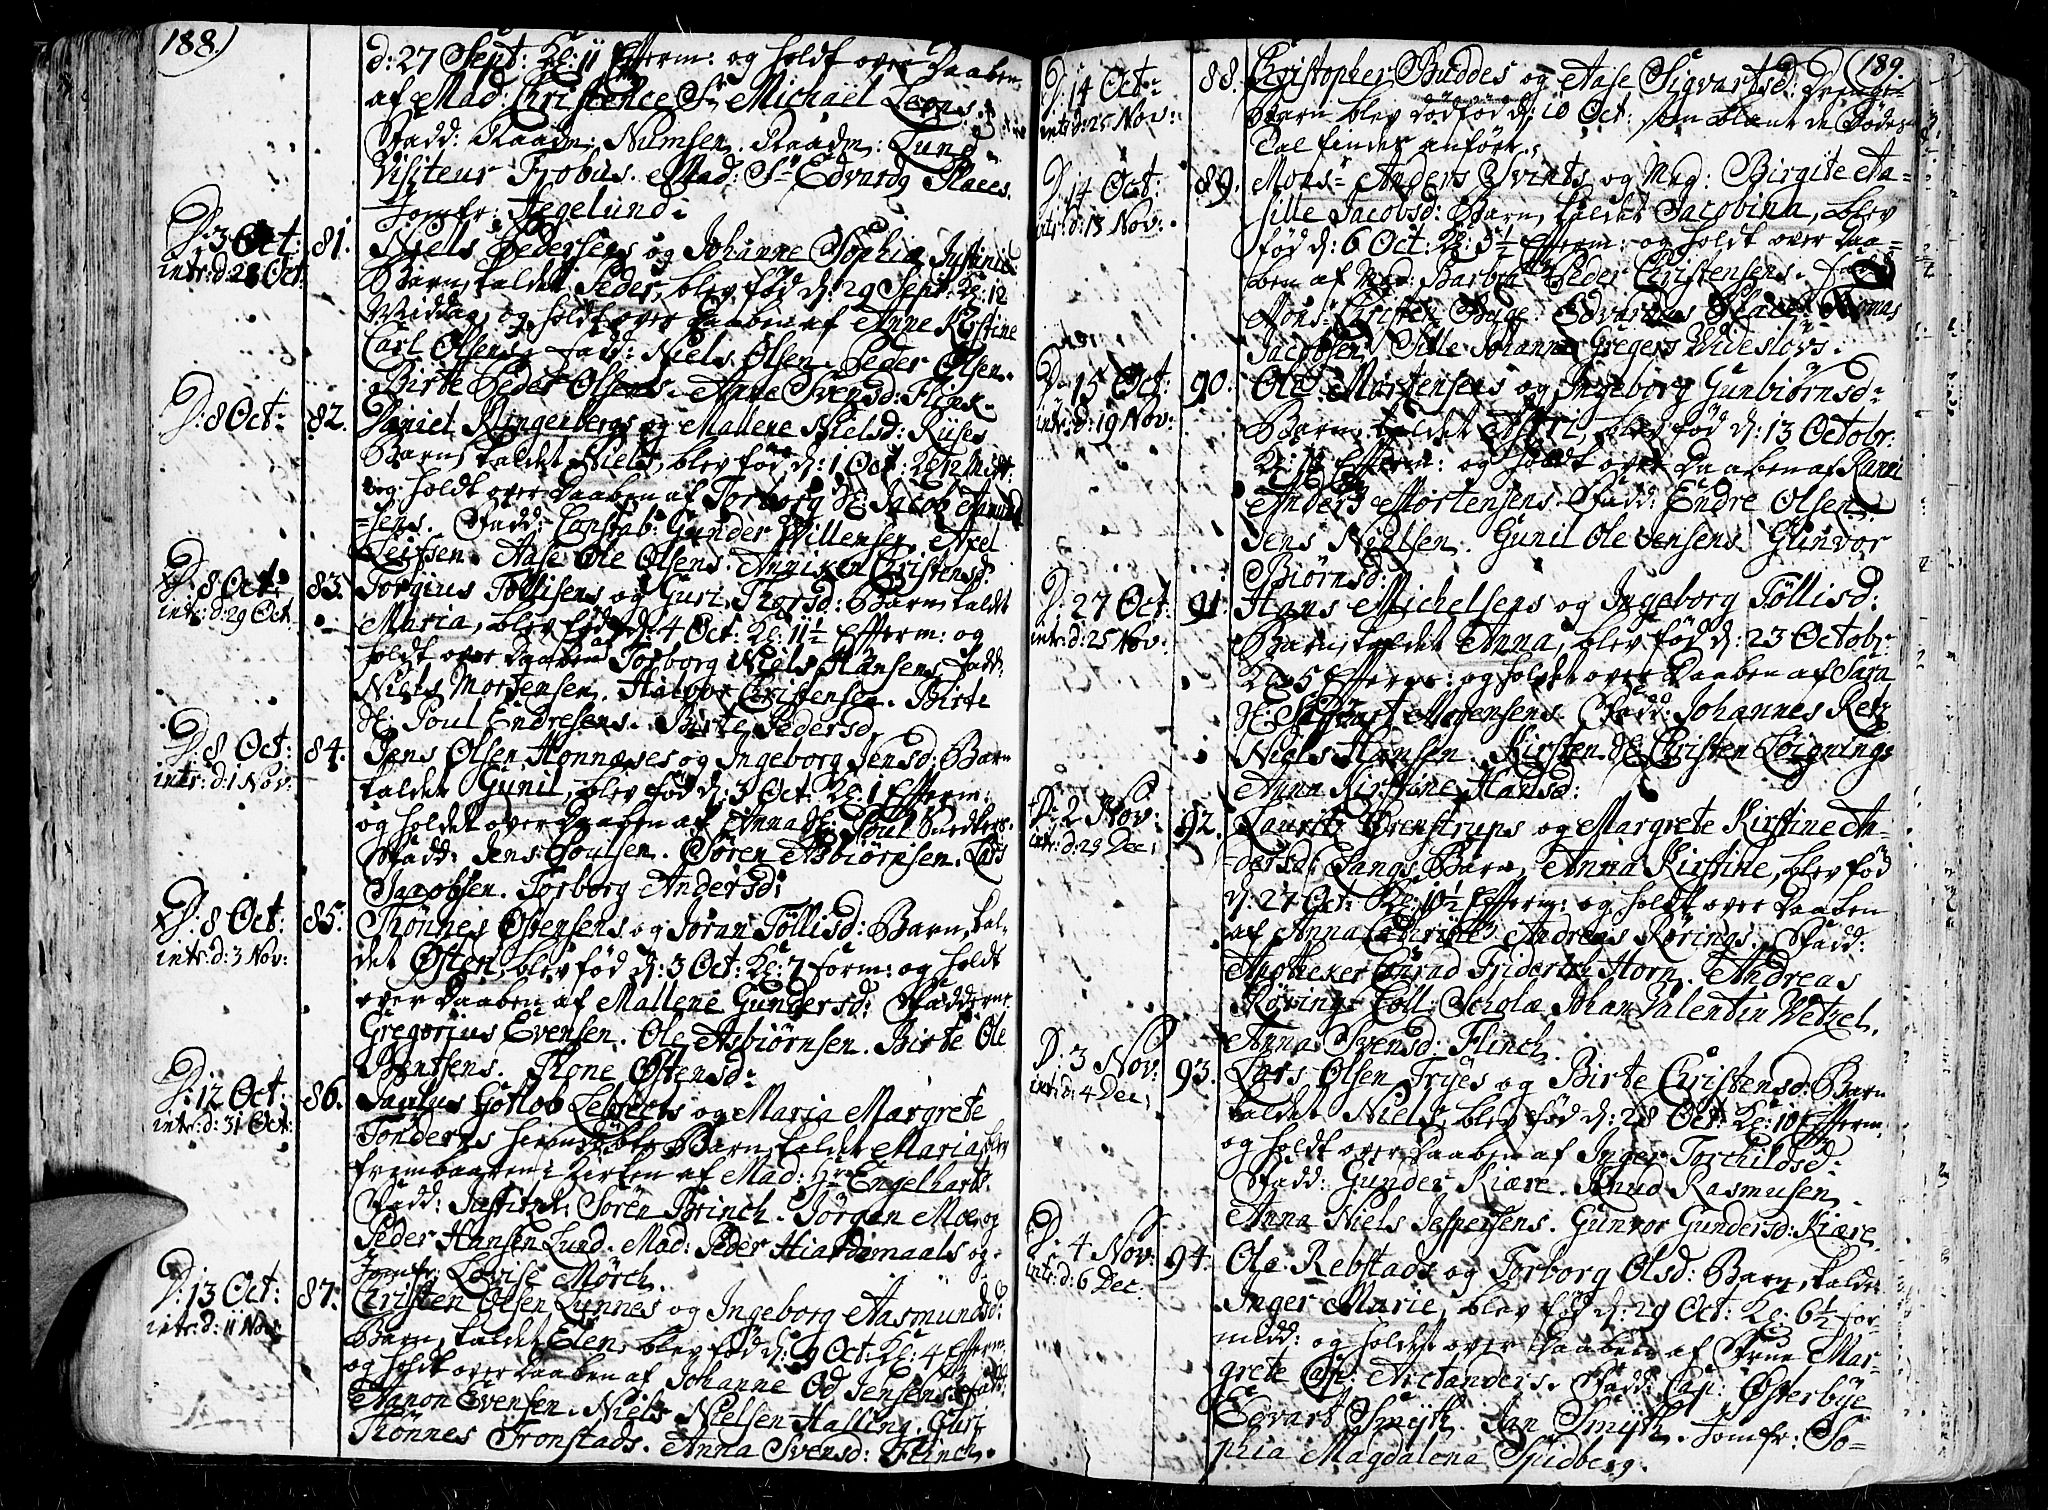 188.)
d: 27 Sept: Kl: 11 Efferm: og holdt over Daaben
af Mad: Christence Sr Michaël Leons.
Fadd: Raadm: Numsen. Raadm: Lund
Visiteur Frobus. Mad: Sr Edvard Places.
Jomfr: Hegelund:
D: 3 Oct: intr: d: 28 Oct: 81. Niels Pedersens og Johanne Sophia
Barn, kaldet Peder, blev fød d: 29 Sept: Kl: 12
Middag, og holdt over Daaben af Anne Kirstine
Carl Olsens, Fadd: Niels Olsen. Peder Olsen.
Birte Peder Olsens. Anne Svensd: Flink.
D: 8 Oct: 82. Daniel Klingenbergs og Mallene Nielsd: Riises
Barn, kaldet Niels, blev fød d: 1 Oct: Kl: 12 Midt:
og holdt over Daaben af Torborg Hr: Jacob Aamund
=sens. Fadd: Constab: Gunder Willensen, Axel
Leifsen. Aase Ole Olsens. Anniken Christensd:
D: 8 Oct: intr: d: 29 Oct 83. Torgius Töllisens og Guri Thorsd: Barn, kaldt
Maria, blev fød d: 4 Oct: Kl: 11½ Efferm: og
holdt over Daaben Torborg Niels Hansens, Fadd:
Niels Mortensen. Halvor Christensen. Birte
Hr: Poul Endresens. Birte Pedersd.
D: 8 Oct: intr: d: 1 Nov: 84. Jens Olsen Honnæses og Ingeborg Jensd: Barn
kaldet Gunil, blev fød d: 3 Oct: Kl: 1 Efferm:
og holdet over Daaben af Anna Hr: Poul Snedkers.
Fadd: Jens Poulsen. Sören Asbiörnsen. Lars
Jacobsen. Torborg Andersd:
D: 8 Oct: intr: d: 3 Nov: 85. Thönnes Östensens og Joran Töllisd: Barn, kal-
det Östen, blev fød d: 3 Oct: Kl: 7 form: og holdt
over Daaben af Mallene Gundersd: Fadderne
Gregorius Evensen. Ole Asbiörnsen. Birte Ole
Bentsens. Tone Östensd:
D: 12 Oct: intr: d: 31 Oct: 86. Paulus Gotlob Lebrects og Maria Margrete
Tonderns hiemdøbte Barn, kaldet Maria, blev
frembaaren i Kirken af Mad: Hr Engelharts.
Fadd: Justitzr: Sören Brinch. Jörgen Moe, og
Peder Hansen Lund. Mad: Peder Hiardemaals og
Jomfr: Lovise Mörch.
D: 13 Oct: intr: d: 11 Nov: 87. Christen Olsen Lunnes og Ingeborg Aasmundsd:
Barn, kaldet Elen, blev fød d: 9 Oct: Kl: 4 Efferm:
og holdt over Daaben af Johanne Od Jensens. Fadd:
Aanon Evensen. Niels Nielsen Halling. Guri
Thönnes Tronstads. Anna Svensd: Flinch.
189.
D: 14 Oct: intr: d: 25 Nov: 88. Christopher Buddes og Aase Sigvartsd: Drenge-
Barn blev dødfød d: 10 Oct: som blant de Dødes
Tal findes anført.
D: 14 Oct: intr: d: 13 Nov: 89. Mons: Anders Qvints og Mad: Birgite Aa-
sille Jacobsd: Barn, kaldet Jacobina, blev
fød d: 6 Oct: Kl: 5½ Efferm: og holdt over Daa=
ben af Mad: Barbra Peder Christensens. Fadd:
Mons: Christen Buge. Edvardus Place. Tomas
Jacobsen. Sille Johanne Gregers Videslövs.
D: 15 Oct: intr: d: 19 Nov: 90. Ole Mortensens og Ingeborg Gunbiörnsd:
Barn, kaldet Astri, blev fød d: 13 Octobr:
Kl: 12 Efferm: og holdt over Daaben af Ranni
Anders Mortensens. Fadd: Endre Olsen.
Jens Nielsen. Gunil Ole Jensens. Gunvor
Biörnsd:
D: 27 Oct: intr: d: 25 Nov: 91. Hans Michelsens og Ingeborg Töllisd:
Barn, kaldet Anna, blev fød d: 23 Octobr:
Kl: 5 Efferm: og holdt over Daaben af Sara
Hr: Sigvart Mogensens. Fadd: Johannes Retz
Niels Hansen. Kirsten Hr: Christen Löignings
Anna Kirstine Hansd:
D: 2 Nov: intr: d: 29 Dec: 92. Lauritz Örenstrups og Margrete Kirstine An-
dersd: Langs Barn, Anna Kirstine, blev fød
d: 27 Oct: Kl: 10½ Efferm: og holdt over Daaben
af Anna Cathrine Andreas Rörings. Fadd:
Apotheker Conrad Friderich Horn. Andreas
Röring. Coll: Scholæ Johan Valentin Wetzel.
Anna Svensd: Flinch.
D: 3 Nov: intr: d: 4 Dec: 93. Lars Olsen Tryes og Birte Christensd: Barn
kaldet Niels, blev fød d: 28 Oct: Kl: 10 Efferm:
og holdt over Daaben af Inger Torchildsd:
Fadd: Gunder Kiære. Knud Rasmusen.
Anna Niels Jespersens. Gunvor Gundersd: Kiære.
D: 4 Nov: intr: d: 6 Dec: 94. Ole Rebstads og Torborg Olsd: Barn, kaldet
Inger Marie, blev fød d: 29 Oct: Kl: 6½ for-
midd: og holdet over Daaben af Frue Mar-
grete Cap: Arctanders. Fadd: Cap: Österbye
Edvart Smith. Jan Smith. Jomfr: So-
phia Magdalena Spidberg.